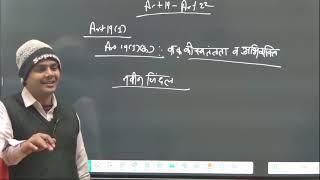 Art 19 - Art 22
Art 19(1)
Art 19(1)(a) : वाक् की स्वतंत्रता व अभिव्यक्ति
नवीन जिंदल